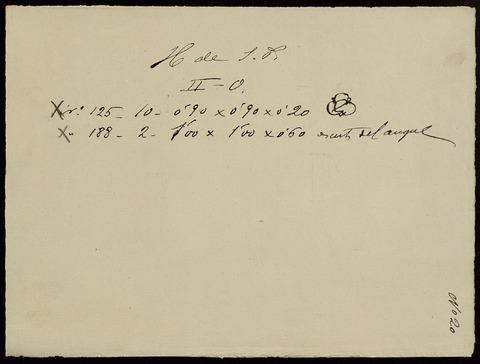 H de S. P.
II - O.
X nº 125 - 10 - 0'90 x 0'90 x 0'20
X " 188 - 2 - 1'00 x 1'00 x 0'60 escuts del angul
Nº 20